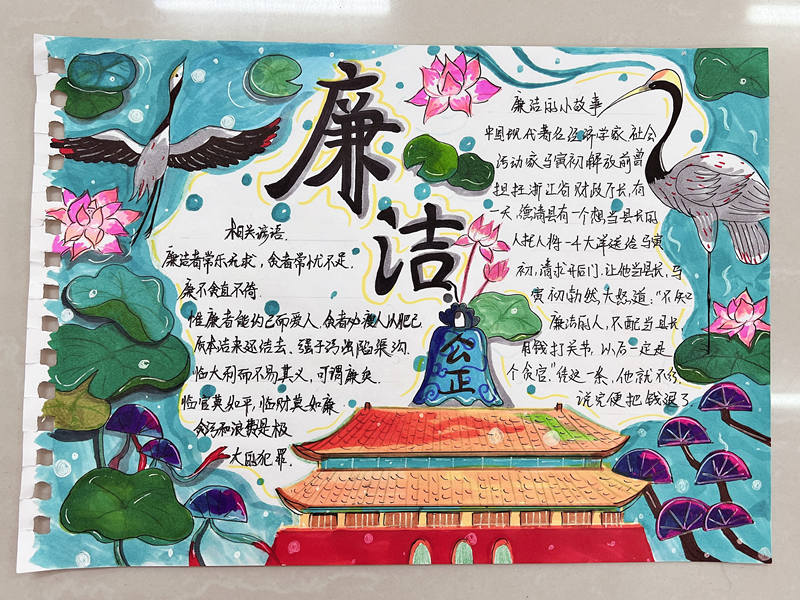 廉洁
相关谚语.
廉洁者常乐无求，贪者常忧不足.
廉不贪直不倚
惟廉者能约己而爱人.贪者必朘人以肥己
质本洁来还洁去、强于污淖陷渠沟
临大利而不易其义，可谓廉矣
临官莫如平，临财莫如廉
贪污和浪费是极
大的犯罪.
公正
廉洁的小故事
中国现代著名经济学家.社会
活动家马寅初解放前曾
担任浙江省财政厅长.有
一天.德清县有一个想当县长的
人托人将一4大洋送给马寅
初，请求开后门.让他当县长.马
寅初勃然大怒道："不知
廉洁的人，不配当县长
用钱打关节，以后一定是
个贪官"凭这一条，他就不行
说完便把钱退了